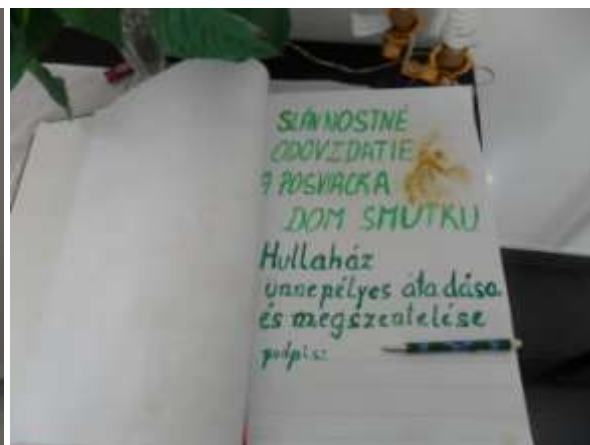 SLÁVNOSTNÉ
ODOVZDATIE
A POSVIACKA
DOM SMUTKU
Hullaház
ünnepélyes átadása
és megszentelése
podpisz